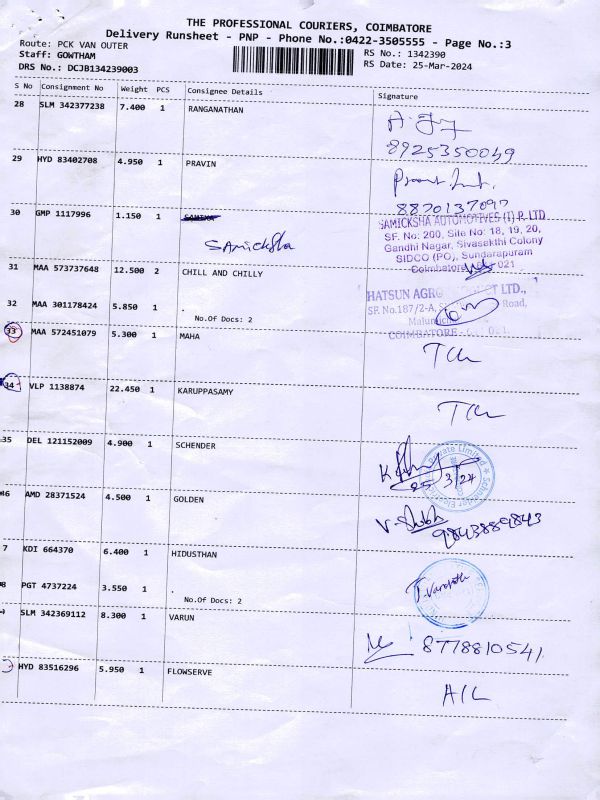 THE PROFESSIONAL COURIERS, COIMBATORE
Delivery Runsheet - PNP - Phone No.:0422-3505555 - Page No.:3
Route: PCK VAN OUTER
Staff: GOWTHAM
DRS No.: DCJB134239003
RS No.: 1342390
RS Date: 25-Mar-2024
S No Consignment No Weight PCS Consignee Details Signature
28 SLM 342377238 7.400 1 RANGANATHAN
8925350049
29 HYD 83402708 4.950 1 PRAVIN
8870137097
30 GMP 1117996 1.150 1
SAmicksha
SAMICKSHA AUTOMOTIVES (I) P. LTD
SF. No: 200, Site No: 18, 19, 20,
Gandhi Nagar, Sivasekthi Colony
SIDCO (PO), Sundarapuram
Coimbatore 021
31 MAA 573737648 12.500 2 CHILL AND CHILLY
HATSUN AGRO LTD.,
SF. No.187/2-A, Road,
COIMBATORE - 021.
32 MAA 301178424 5.850 1
No.Of Docs: 2
33 MAA 572451079 5.300 1 MAHA
34 VLP 1138874 22.450 1 KARUPPASAMY
35 DEL 121152009 4.900 1 SCHENDER
Private Limited
25/3/24
46 AMD 28371524 4.500 1 GOLDEN
9843889843
7 KDI 664370 6.400 1 HIDUSTHAN
8 PGT 4737224 3.550 1
No.Of Docs: 2
SLM 342369112 8.300 1 VARUN
8778810541
HYD 83516296 5.950 1 FLOWSERVE